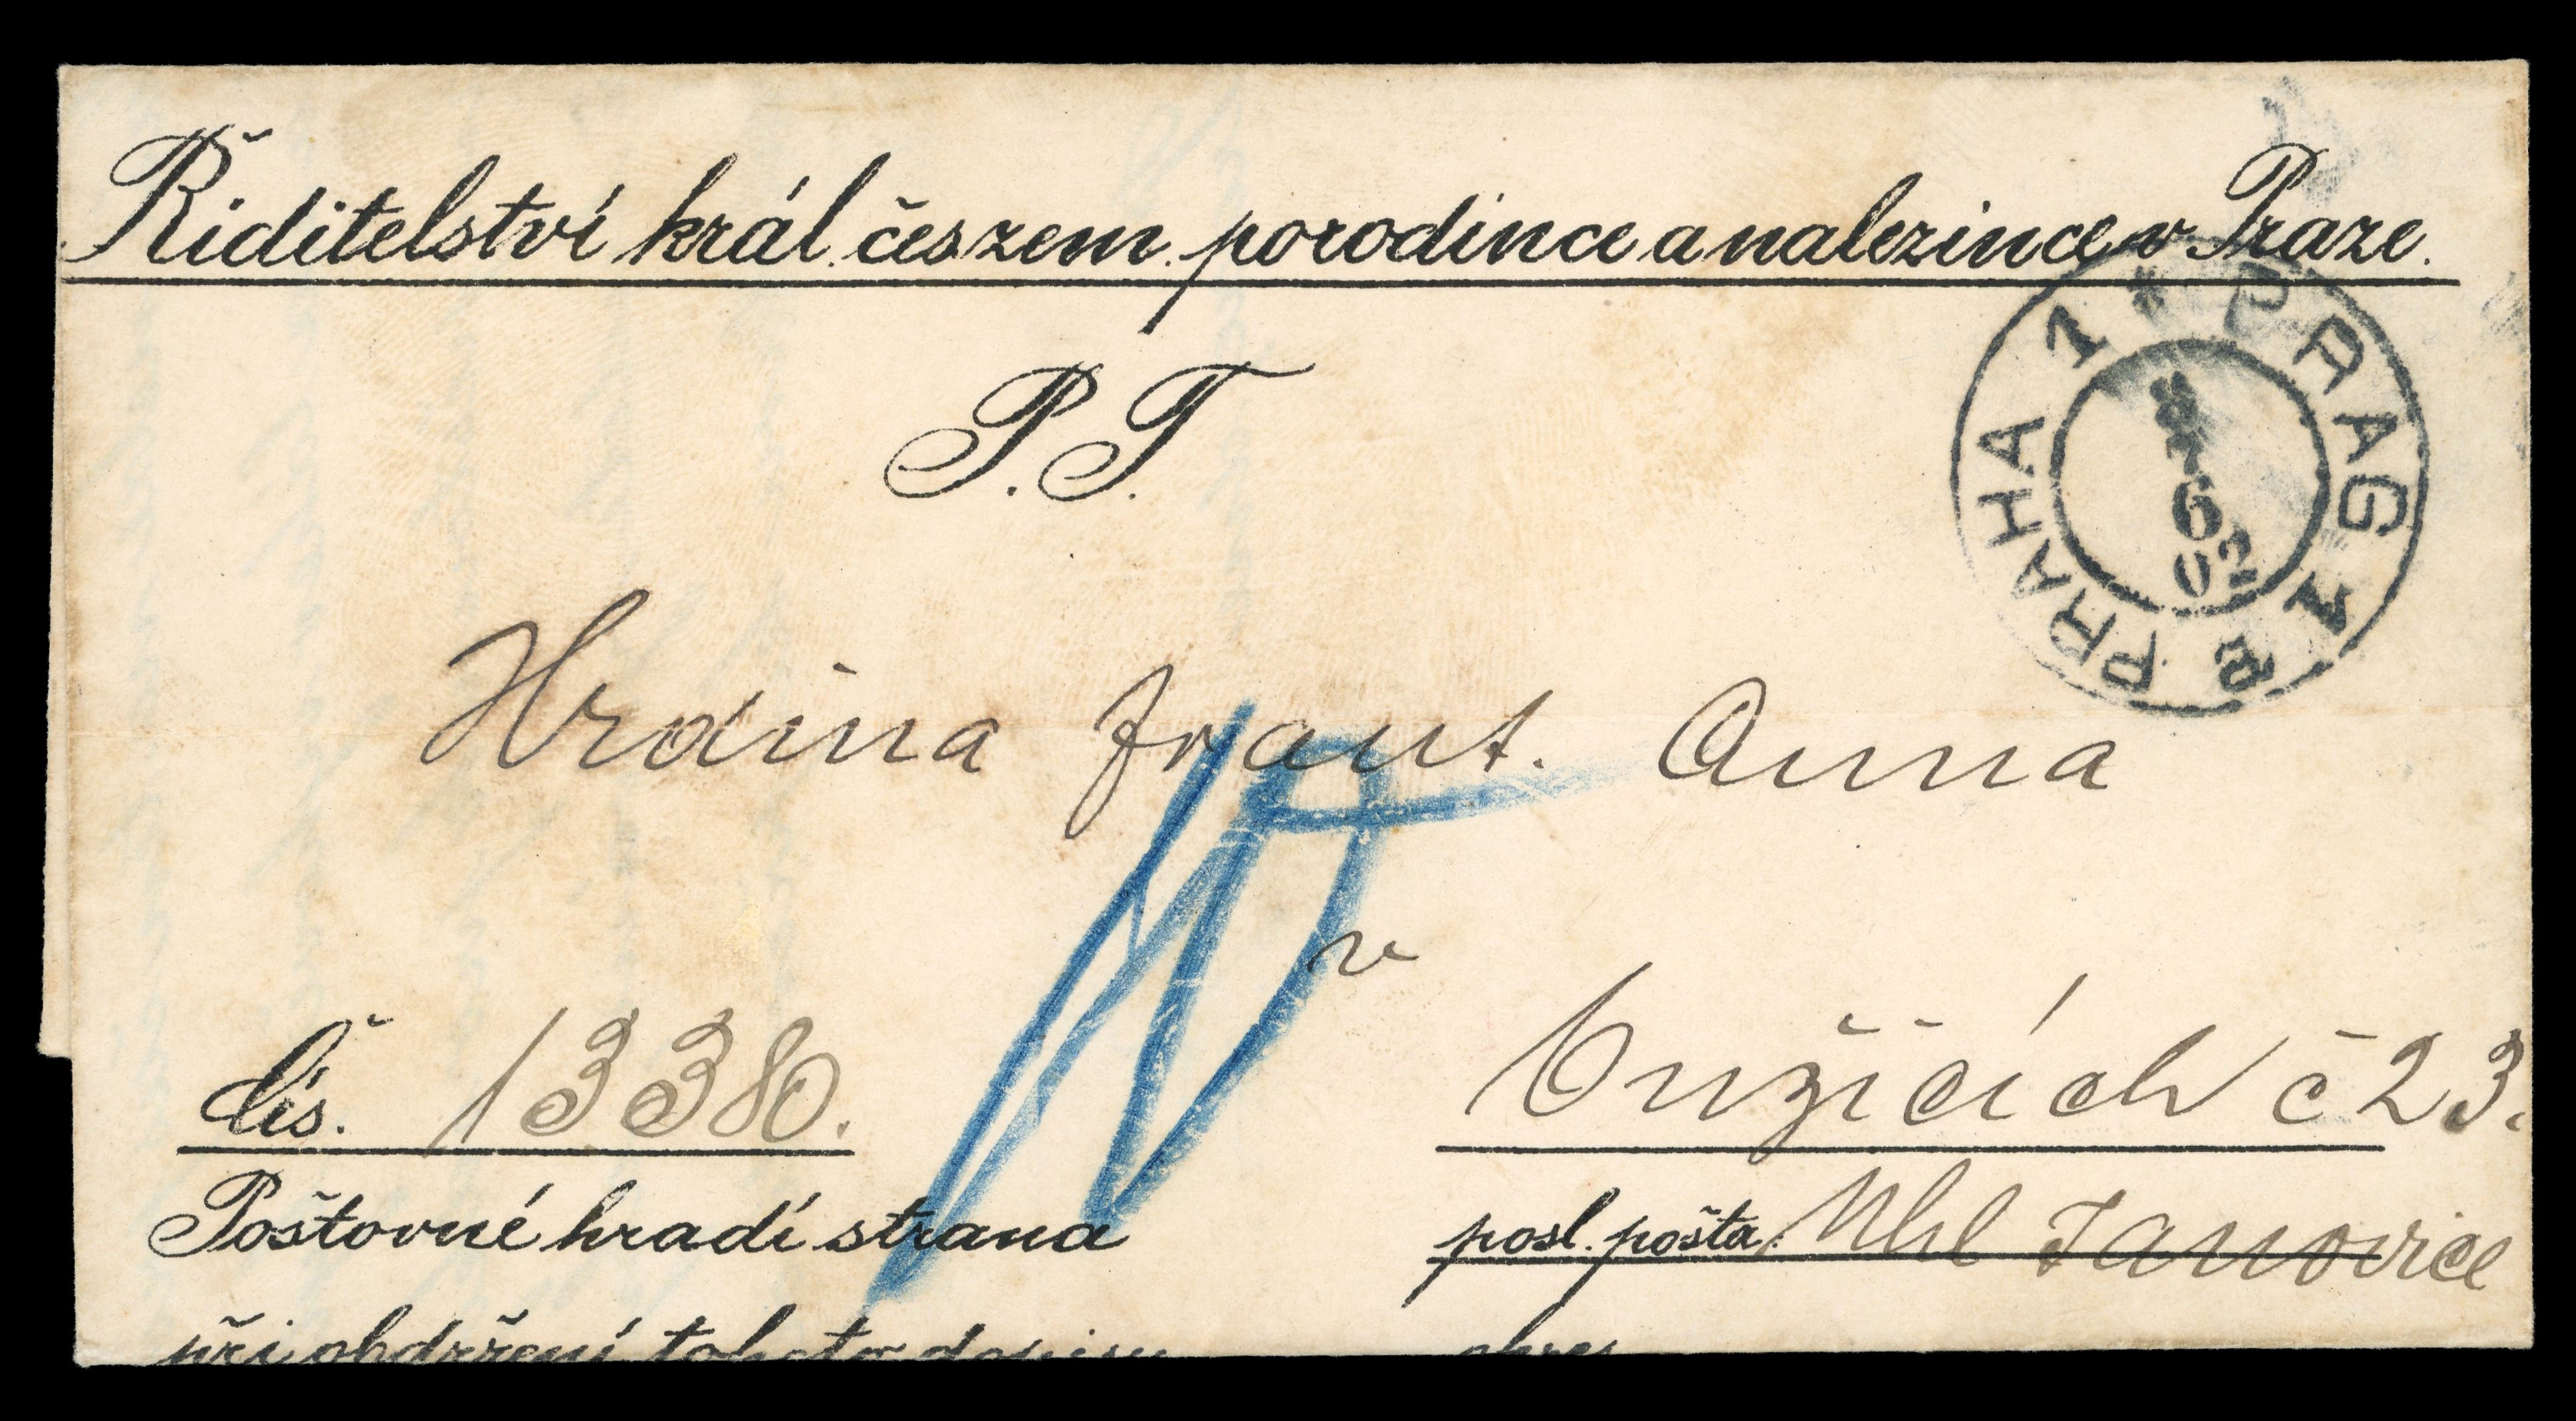 Ředitelství král. čes zem. porodince a nalezince v Praze.
PRAHA 1 * PRAG 1
6
02
P. T.
Hrdina Frant. Anna
v
čís. 1338.
Onžicích č 23.
Poštovné hradí strana
posl. pošta: Uhl Janovice
při obdržení tohoto dopisu
okres